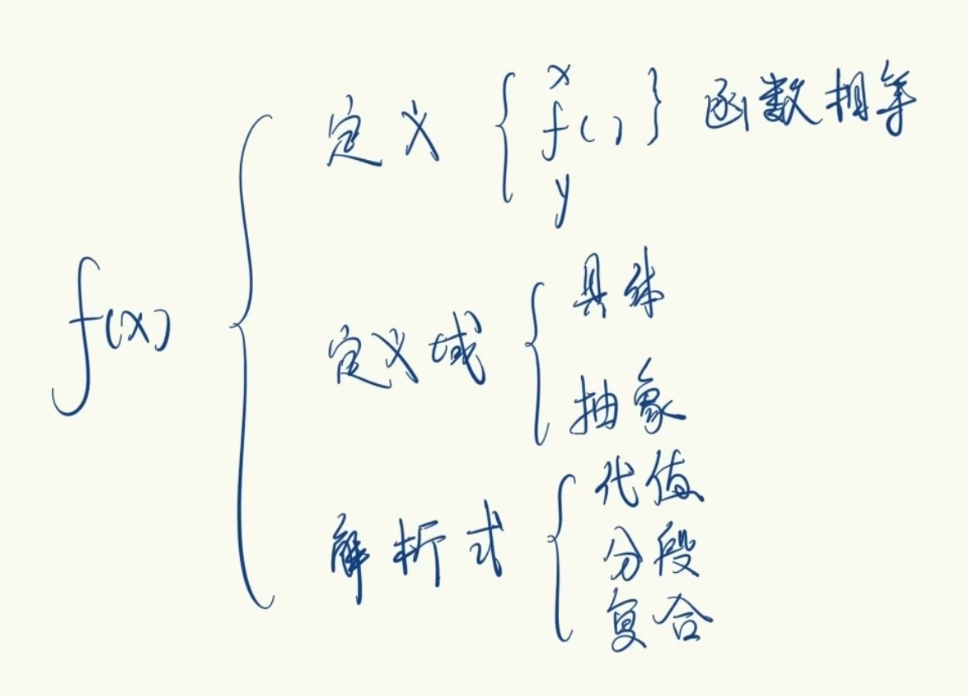 f(x)
定义 { x f( ) y } 函数相等
定义域 { 具体
抽象
解析式 { 代值
分段
复合